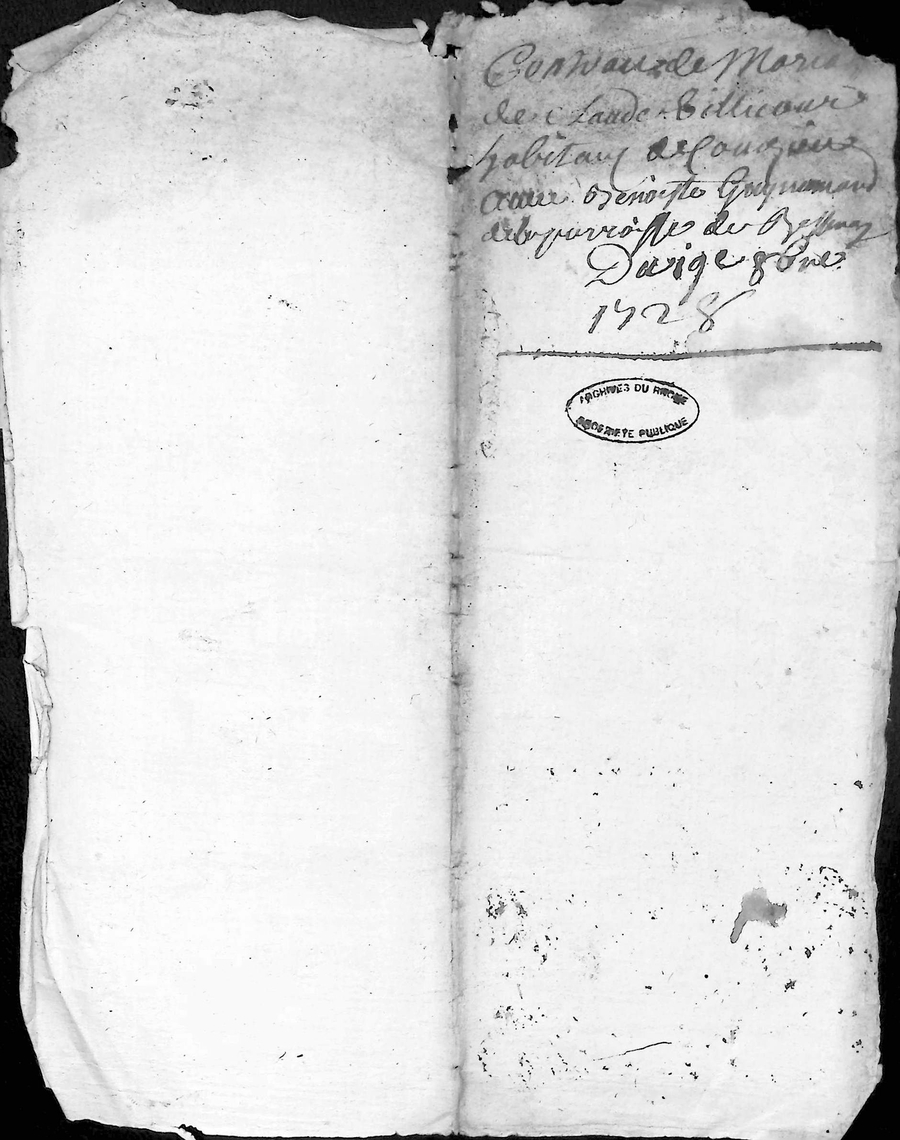 Contrat de Maria
de Claude Billicour
habitant de Couzieu
avec Benoiste Guynamand
de la parroisse de Bessenay
Du 19e 8bre
1728
ARCHIVES DU RHONE
PROPRIETE PUBLIQUE